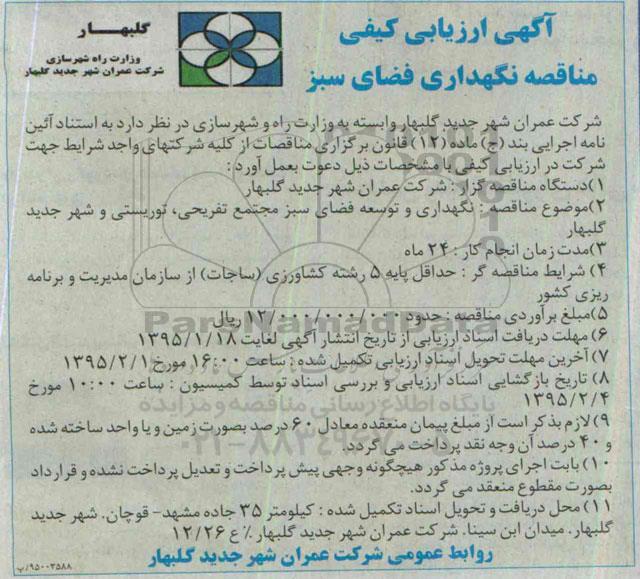 آگهی ارزیابی کیفی
مناقصه نگهداری فضای سبز
گلبهـــار
وزارت راه شهرسازی
شرکت عمران شهر جدید گلبهار
شرکت عمران شهر جدید گلبهار وابسته به وزارت راه و شهرسازی در نظر دارد به استناد آئین
نامه اجرایی بند (ج) ماده (۱۲) قانون برگزاری مناقصات از کلیه شرکتهای واجد شرایط جهت
شرکت در ارزیابی کیفی با مشخصات ذیل دعوت بعمل آورد :
۱)دستگاه مناقصه گزار : شرکت عمران شهر جدید گلبهار
۲)موضوع مناقصه : نگهداری و توسعه فضای سبز مجتمع تفریحی، توریستی و شهر جدید
گلبهار
۳)مدت زمان انجام کار : ۲۴ ماه
۴) شرایط مناقصه گر : حداقل پایه ۵ رشته کشاورزی (ساجات) از سازمان مدیریت و برنامه
ریزی کشور
۵)مبلغ برآوردی مناقصه : حدود ۱۲/۰۰۰/۰۰۰/۰۰۰ ریال
۶) مهلت دریافت اسناد ارزیابی از تاریخ انتشار آگهی لغایت ۱۳۹۵/۱/۱۸
۷) آخرین مهلت تحویل اسناد ارزیابی تکمیل شده : ساعت ۱۶:۰۰ مورخ ۱۳۹۵/۲/۱
۸) تاریخ بازگشایی اسناد ارزیابی و بررسی اسناد توسط کمیسیون : ساعت ۱۰:۰۰ مورخ
۱۳۹۵/۲/۴
۹)لازم بذکر است از مبلغ پیمان منعقده معادل ۶۰ درصد بصورت زمین و یا واحد ساخته شده
و ۴۰ درصد آن وجه نقد پرداخت می گردد.
۱۰) بابت اجرای پروژه مذکور هیچگونه وجهی پیش پرداخت و تعدیل پرداخت نشده و قرارداد
بصورت مقطوع منعقد می گردد.
۱۱) محل دریافت و تحویل اسناد تکمیل شده : کیلومتر ۳۵ جاده مشهد- قوچان. شهر جدید
گلبهار. میدان ابن سینا. شرکت عمران شهر جدید گلبهار ٪ ع ۱۲/۲۶
روابط عمومی شرکت عمران شهر جدید گلبهار
۹۵۰۰۳۵۸۸/پ
ParsNamadData
پایگاه اطلاع رسانی مناقصه و مزایده